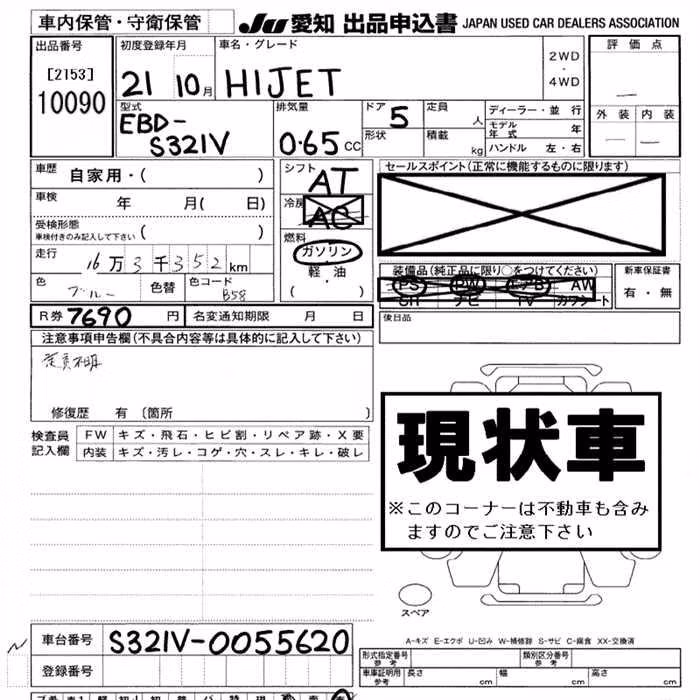 車内保管・守衛保管 JU 愛知 出品申込書 JAPAN USED CAR DEALERS ASSOCIATION
出品番号 初度登録年月 車名・グレード 評価点
[2153]
10090
21 10月 HIJET
2WD
・
4WD
型式 排気量 ドア 定員 ディーラー・並行
EBD-
S321V 0.65cc 5 人
形状 積載 kg
モデル年式 年
ハンドル 左・右
外装 内装
車歴 自家用・( )
車検 年 月( 日)
受検形態
車検付きのみ記入して下さい ( )
走行 16万3千352km
色 ブルー 色替 色コード B58
シフト AT
冷房 AC
燃料 ガソリン
軽・油
( )
セールスポイント(正常に機能するものに限ります)
装備品(純正品に限り○をつけてください) 新車保証書
PS PW エアB AW 有・無
SH ナビ TV カワシート
R券 7690円 名変通知期限 月 日
後日品
注意事項申告欄(不具合内容等は具体的に記入して下さい)
修復歴 有〔箇所 〕
検査員記入欄 FW キズ・飛石・ヒビ割・リペア跡・X要
内装 キズ・汚レ・コゲ・穴・スレ・キレ・破レ
現状車
※このコーナーは不動車も含み
ますのでご注意下さい
スペア
A-キズ E-エクボ U-凹み W-補修跡 S-サビ C-腐食 XX-交換済
車台番号 S321V-0055620
登録番号
形式指定番号 参考 類別区分番号 参考
車庫証明用 参考 長さ cm 幅 cm 高さ cm